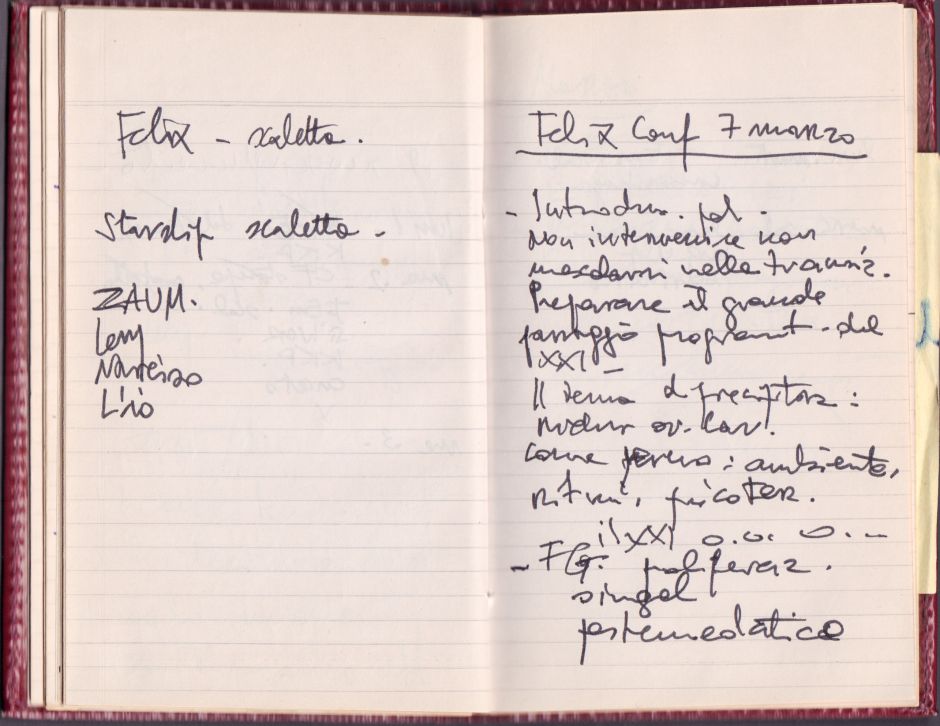 Felix - scaletta.
Starship scaletta -
ZAUM.
Lem
Narciso
L'io
Felix Conf 7 marzo
- Introduz. pol.
Non intervenire non
mescolarsi nella transiz.
Preparare il grande
passaggio programmat. del
XXI -
Il tema d precipitaz :
riduz or. lav.
come : ambiente,
ritmi, psicoter.
il XXI o.o. o...
- FG. proliferaz.
singol
postmediatica